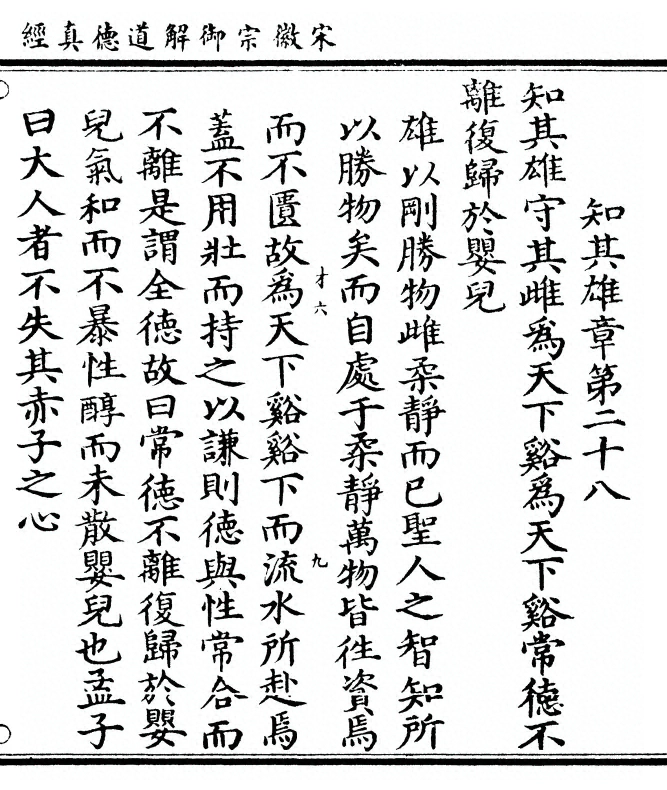 宋徽宗御解道德真經
知其雄章第二十八
知其雄守其雌爲天下谿爲天下谿常德不
離復歸於嬰兒
雄以剛勝物雌柔靜而已聖人之智知所
以勝物矣而自處于柔靜萬物皆往資焉
而不匱故爲天下谿谿下而流水所赴焉
蓋不用壯而持之以謙則德與性常合而
不離是謂全德故曰常德不離復歸於嬰
兒氣和而不暴性醇而未散嬰兒也孟子
曰大人者不失其赤子之心
才六
九